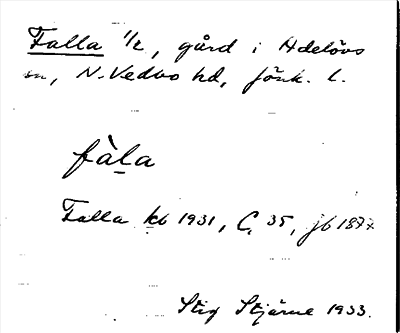 Falla 1/2, gård i Adelövs
sn, N. Vedbo hd, Jönk. l.
fàla
Falla kb 1931, C, 35, jb 1877
Stig Stjärne 1933.